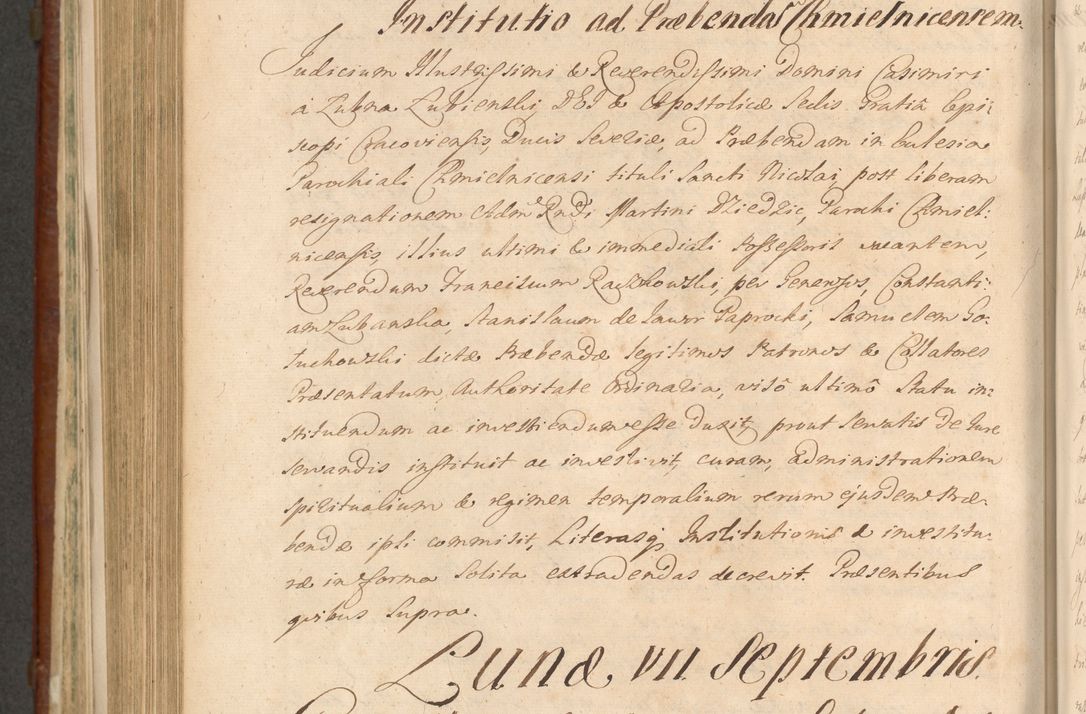 Institutio ad Præbendas Chmielnicensem.
Judicium Illustrissimi & Reverendissimi Domini Casimiri
à Łubna Łubienski, DEI & Apostolicæ Sedis Gratiâ Epi:
scopi Cracoviensis, Ducis Severiæ, ad Præbendam in Eclesia
Parochiali Chmielnicensi tituli Sancti Nicolai, post liberam
resignationem Adm. Rndi Martini Dziedzic, Parochi Chmiel:
nicensis illius ultimi & immediati Possessoris vacantem,
Reverendum Franciscum Raczkowski, per Generosos, Constanti:
am Łubanska, Stanislaum de Jawor Paprocki, Samuelem Go:
łuchowski dictæ Præbendæ legitimos Patronos & Collatores
Præsentatum, Authoritate Ordinaria, visô ultimô Statu in:
stituendum ac investiendum esse duxit, prout servatis De Jure
servandis instituit ac investivit, curam, administrationem
spiritualium & regimen temporalium rerum ejusdem Præ:
bendæ ipsi commisit, Literasq; Institutionis & investitu:
ræ in forma Solita extradendas decrevit. Præsentibus
quibus supra.
Lunæ VII Septembris.